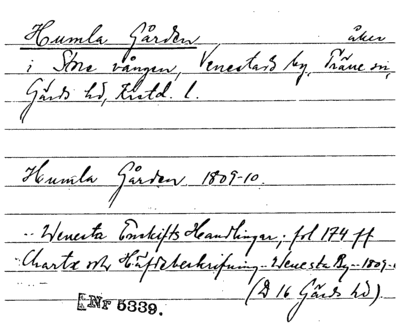 Humla Gården åker
i Stora vången, Venestads by, Träne sn,
Gärds hd, Kristd. l.
Humla Gården 1809-10.
Wenesta Enskifts Handlingar, fol 174 ff
Charta och Häfdebeskrifning Wenesta By 1809-
(D 16 Gärds hd).
Nr 5339.